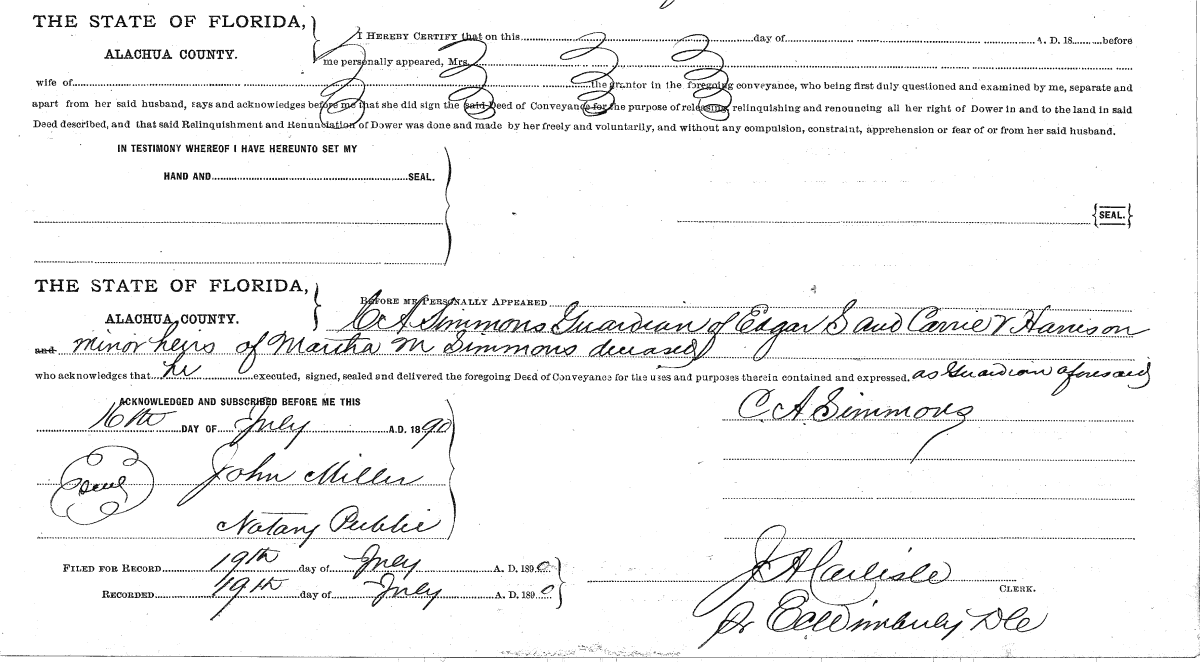 THE STATE OF FLORIDA,
ALACHUA COUNTY.
I HEREBY CERTIFY that on this day of A. D. 18 before
me personally appeared, Mrs.
wife of the grantor in the foregoing conveyance, who being first duly questioned and examined by me, separate and
apart from her said husband, says and acknowledges before me that she did sign the said Deed of Conveyance for the purpose of releasing, relinquishing and renouncing all her right of Dower in and to the land in said
Deed described, and that said Relinquishment and Renunciation of Dower was done and made by her freely and voluntarily, and without any compulsion, constraint, apprehension or fear of or from her said husband.
IN TESTIMONY WHEREOF I HAVE HEREUNTO SET MY
HAND AND SEAL.
{SEAL.}
THE STATE OF FLORIDA,
ALACHUA COUNTY.
BEFORE ME PERSONALLY APPEARED
C A Simmons Guardian of Edgar S and Carrie V Harrison
and minor heirs of Martha M Simmons deceased
who acknowledges that he executed, signed, sealed and delivered the foregoing Deed of Conveyance for the uses and purposes therein contained and expressed, as Guardian aforesaid
ACKNOWLEDGED AND SUBSCRIBED BEFORE ME THIS
16th DAY OF July A.D. 1890
C A Simmons
Seal John Miller
Notary Public
FILED FOR RECORD 19th day of July A. D. 1890
RECORDED 19th day of July A. D. 1890
J A Carlisle
CLERK.
Pr E C Wimberly D C